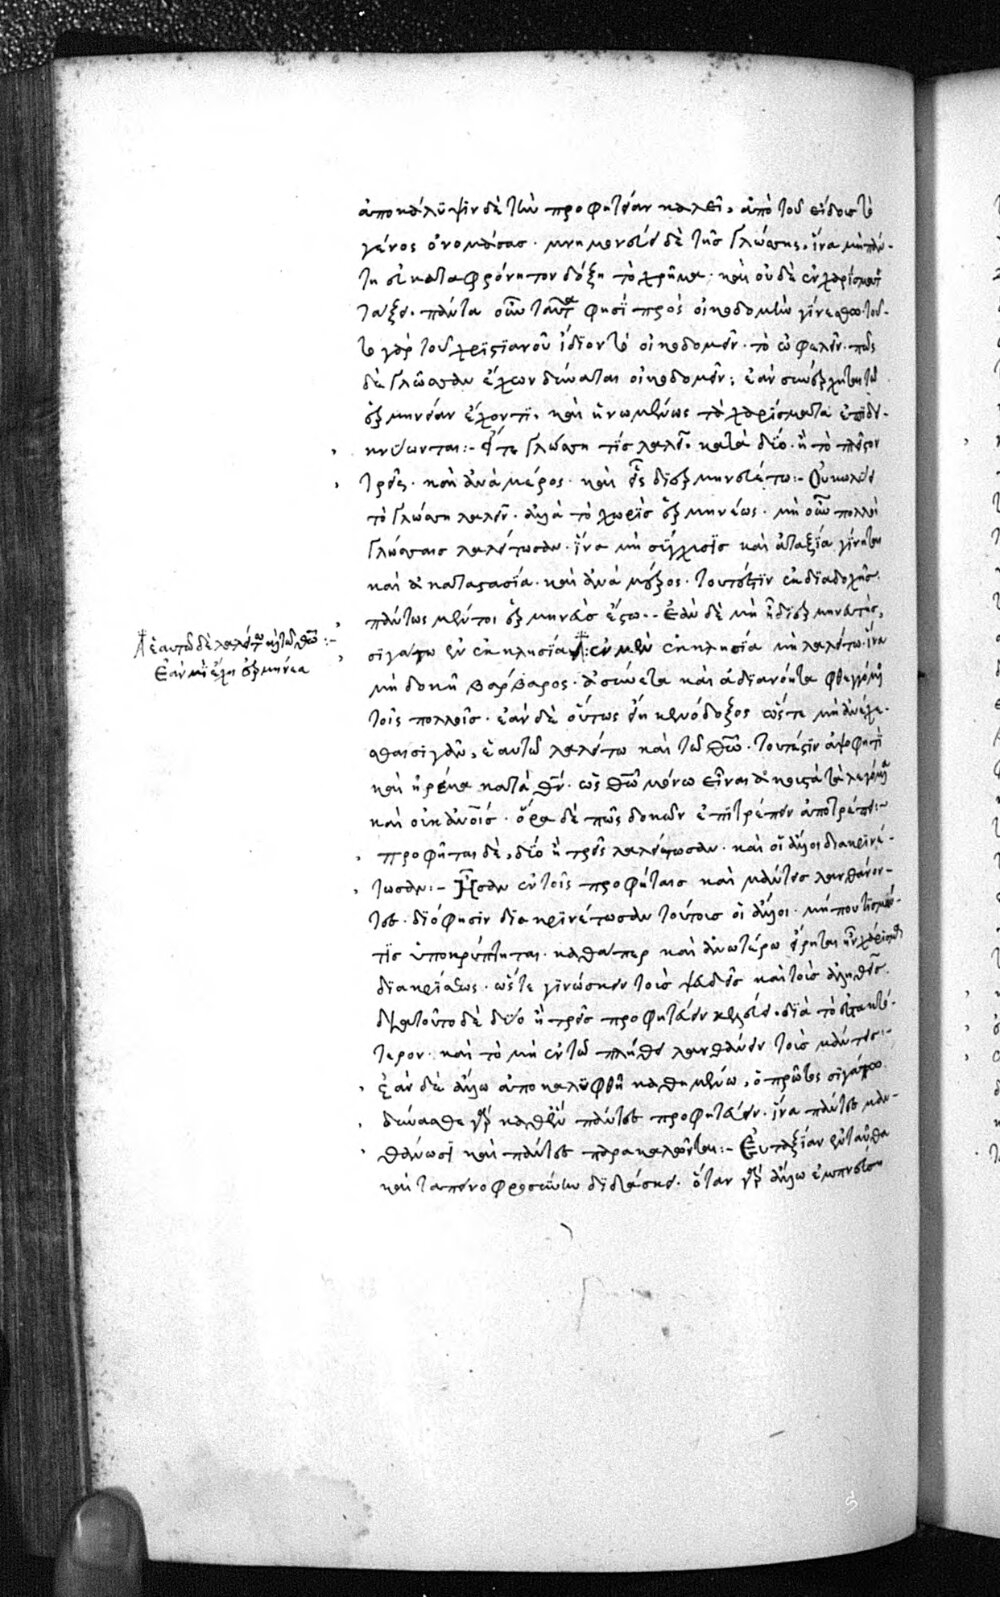 ἀποκάλυψιν δὲ τὴν προφητείαν καλεῖ, ἀπὸ τοῦ εἴδους τὸ
γένος ὀνομάσας· μνημονεύει δὲ τῆς γλώσσης, ἵνα μὴ πάν-
τη εὐκαταφρόνητον δόξη τὸ χρῆμα· καὶ οὐδὲ ἐν χαρίσματι
τάξει· πάντα οὖν ταῦτα φησὶ πρὸς οἰκοδομὴν γινέσθω· τοῦ-
το γὰρ τοῦ χριστιανοῦ ἴδιον τὸ οἰκοδομεῖν· τὸ ὠφελεῖν· πῶς
δὲ γλῶσσαν ἔχων δύναται οἰκοδομεῖν; ἐὰν συνέρχηται τῶ
ἑρμηνείαν ἔχοντι, καὶ ἡνωμένως τὰ χαρίσματα ἐπιδει-
κνύωνται:- Εἴτε γλώσση τίς λαλεῖ· κατὰ δύο· ἢ τὸ πλεῖστον
τρεῖς· καὶ ἀνὰ μέρος· καὶ εἷς διερμηνευέτω:- Οὐ κωλύει
τὸ γλώσση λαλεῖν· ἀλλὰ τὸ χωρὶς ἑρμηνέως· μὴ οὖν πολλοὶ
γλώσσαις λαλείτωσαν· ἵνα μὴ σύγχυσις καὶ ἀταξία γίνηται
καὶ ἀκαταστασία· καὶ ἀνὰ μέρος· τουτέστιν ἐκ διαδοχῆς·
πάντως μέντοι ἑρμηνεὺς ἔστω·- Ἐὰν δὲ μὴ ᾖ διερμηνευτής,
σιγάτω ἐν ἐκκλησία:- ἐν μὲν ἐκκλησία μὴ λαλείτω· ἵνα
μὴ δοκῆ βάρβαρος· ἀσύνετα καὶ ἀδιανόητα φθεγγόμενος
τοῖς πολλοῖς· ἐὰν δὲ οὕτως ἦ κενόδοξος ὥστε μὴ ἀνέχε-
σθαι σιγᾶν, ἑαυτῶ λαλείτω καὶ τῶ θεῶ· τουτέστιν ἀψοφητὶ
καὶ ἠρέμα κατὰ θν· ὡς θεῶ μόνω εἶναι ἀκουστὰ τὰ λεγόμενα
καὶ οὐκ ἀνοις· ὅρα δὲ πῶς δοκῶν ἐπιτρέπειν ἀποτρέπει:-
προφῆται δὲ, δύο ἢ τρεῖς λαλείτωσαν· καὶ οἱ ἄλλοι διακρινέ-
τωσαν:- Ἦσαν ἐν τοῖς προφήταις καὶ μάντεις λανθάνον-
τες· διό φησιν διακρινέτωσαν τούτους οἱ ἄλλοι· μήπου τις μάν-
τις ὑποκρύπτηται· καθάπερ καὶ ἀνωτέρω εἴρηται ἦν χάρισμα
διακρίσεως· ὥστε γινώσκειν τοὺς ψευδεῖς καὶ τοὺς ἀληθεῖς·
διατοῦτο δὲ δύο ἢ τρεῖς προφητεύειν κελεύει· διὰ τὸ εὐτακτό-
τερον· καὶ τὸ μὴ ἐν τῶ πλήθει λανθάνειν τοὺς μάντεις:-
ἐὰν δὲ ἄλλω ἀποκαλυφθῆ καθημένω, ὁ πρῶτος σιγάτω·
δύνασθε γὰρ καθ' ἕνα πάντες προφητεύειν· ἵνα πάντες μαν-
θάνωσι καὶ πάντες παρακαλῶνται:- Εὐταξίαν ἐνταῦθα
καὶ ταπεινοφροσύνην διδάσκει· ὅταν γὰρ ἄλλω ἐμπνεύση
ἑαυτῶ δὲ λαλείτω καὶ τῶ θεῶ:-
Ἐὰν μὴ ἔχη ἑρμηνέα